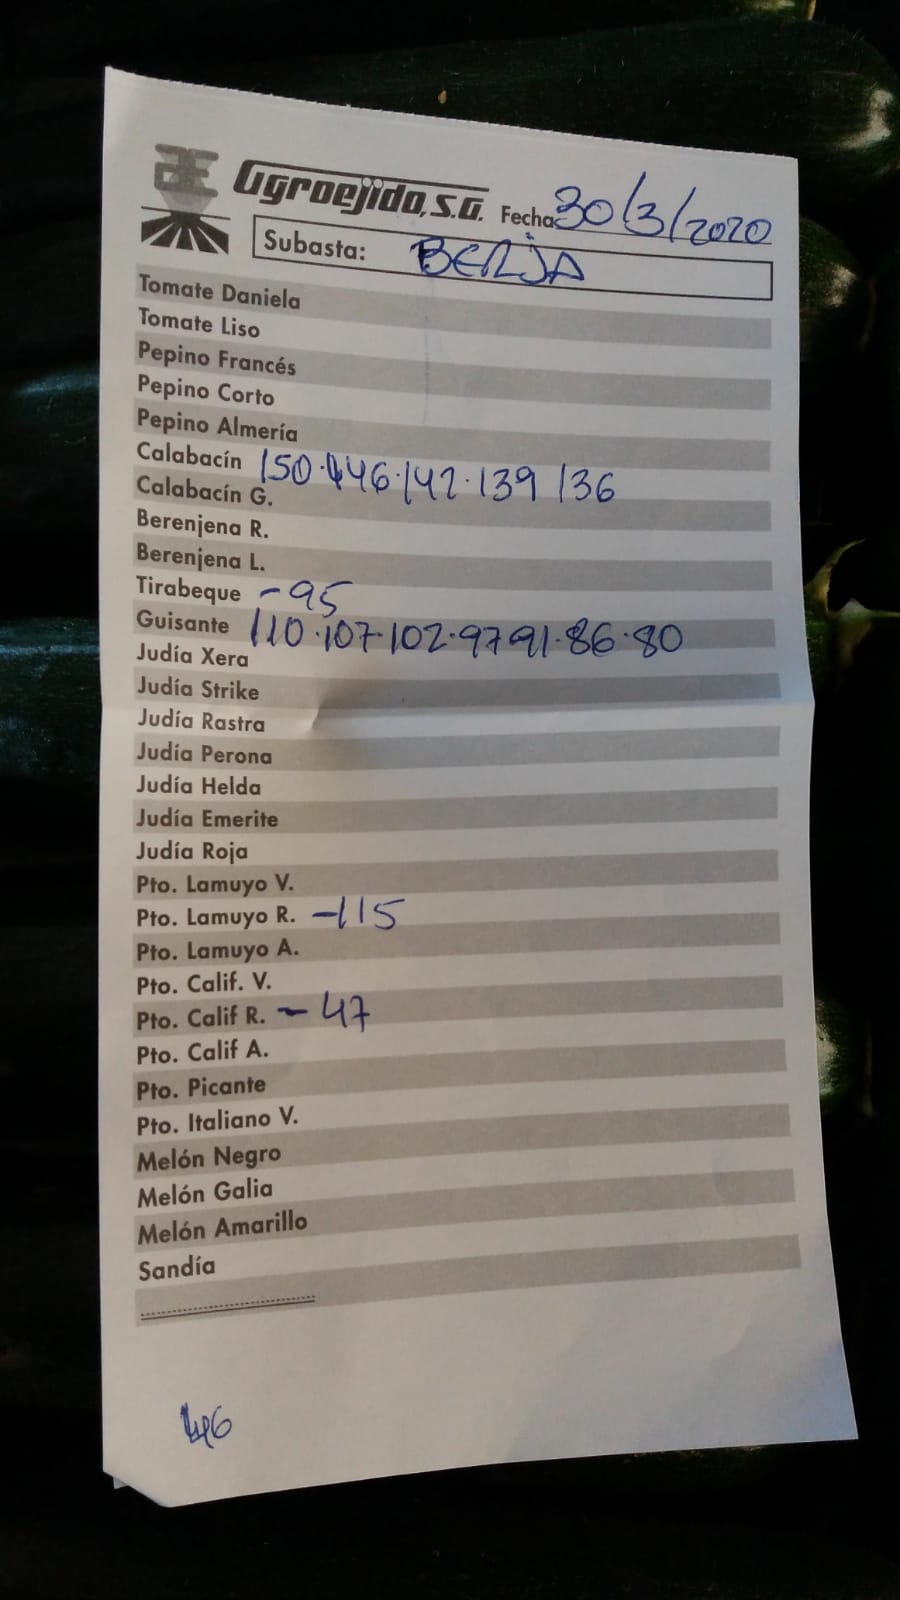 Agroejido, S.A. Fecha 30/3/2020
Subasta: BERJA
Tomate Daniela
Tomate Liso
Pepino Francés
Pepino Corto
Pepino Almería
Calabacín 150·146·142·139 136
Calabacín G.
Berenjena R.
Berenjena L.
Tirabeque -95
Guisante 110·107·102·97 91·86·80
Judía Xera
Judía Strike
Judía Rastra
Judía Perona
Judía Helda
Judía Emerite
Judía Roja
Pto. Lamuyo V.
Pto. Lamuyo R. -115
Pto. Lamuyo A.
Pto. Calif. V.
Pto. Calif R. - 47
Pto. Calif A.
Pto. Picante
Pto. Italiano V.
Melón Negro
Melón Galia
Melón Amarillo
Sandía